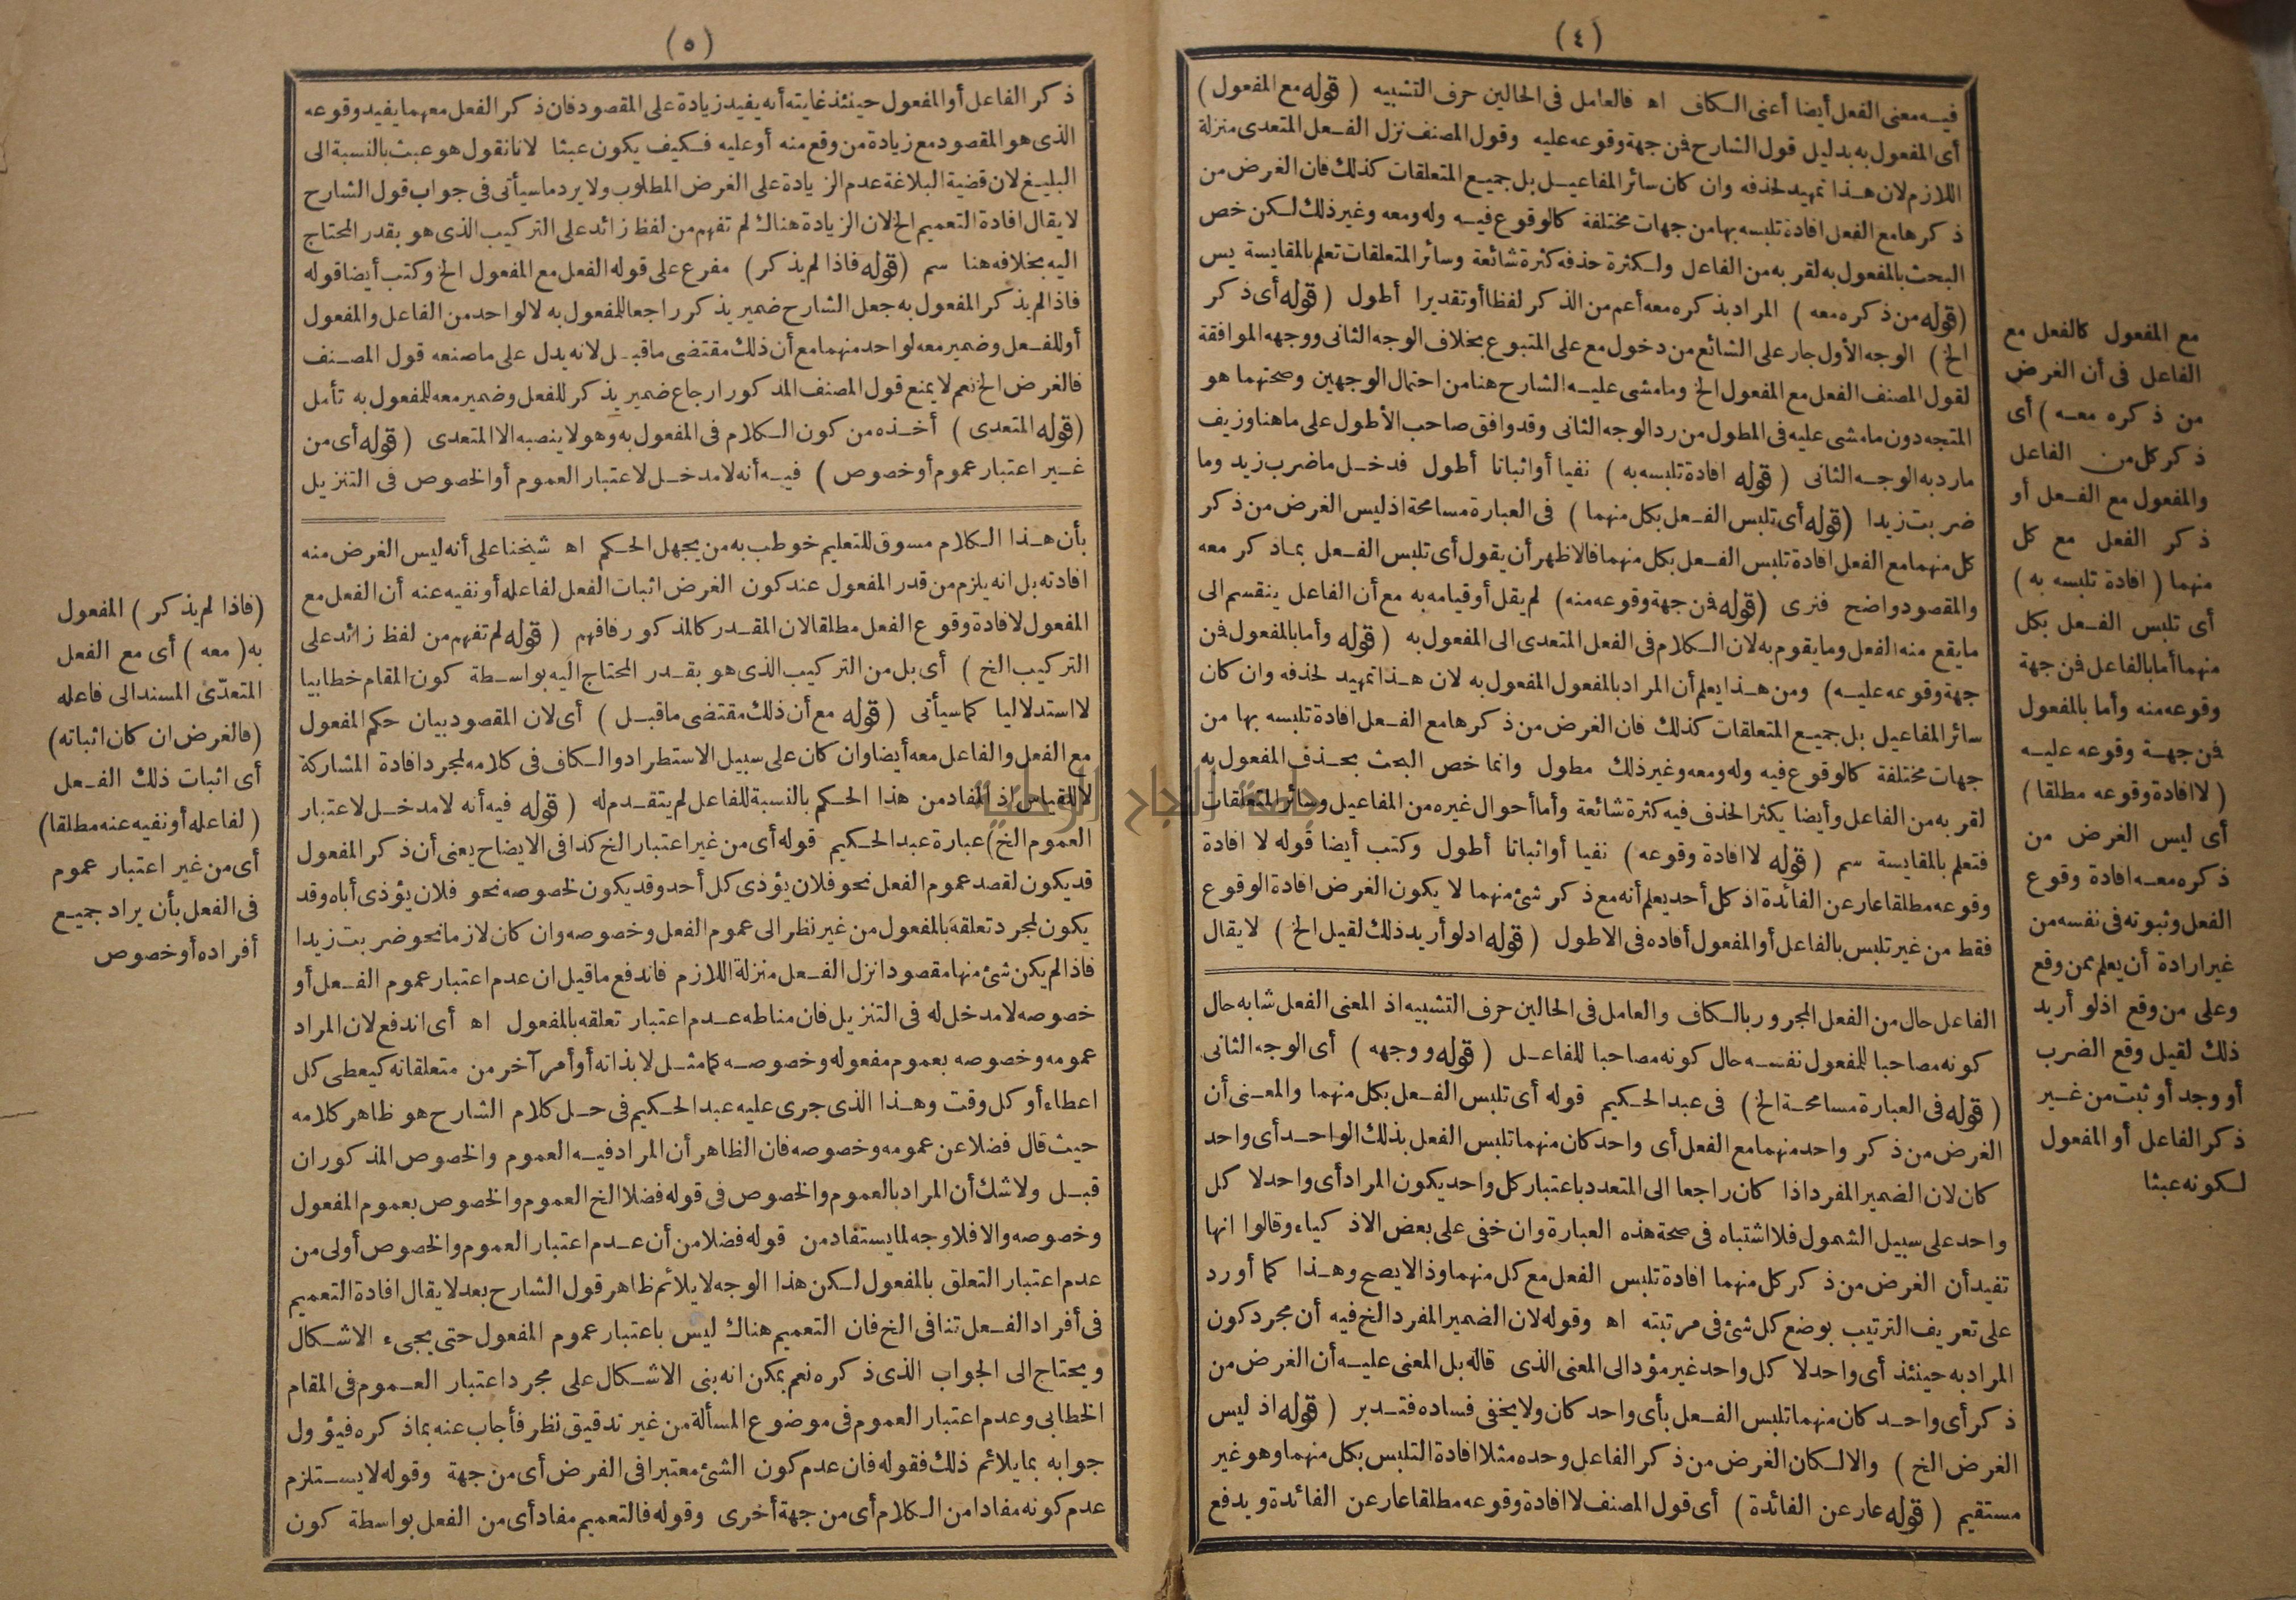 (٤)
فيه معنى الفعل أيضا أعنى الكاف اه فالعامل فى الحالين حرف التشبيه (قوله مع المفعول)
أى المفعول به بدليل قول الشارح فمن جهة وقوعه عليه وقول المصنف نزل الفعل المتعدى منزلة
اللازم لان هذا تمهيد لحذفه وان كان سائر المفاعيل بل جميع المتعلقات كذلك فان الغرض من
ذكرها مع الفعل افادة تلبسه بها من جهات مختلفة كالوقوع فيه وله ومعه وغير ذلك لكن خص
البحث بالمفعول به لقربه من الفاعل ولكثرة حذفه كثرة شائعة وسائر المتعلقات تعلم بالمقايسة يس
(قوله من ذكره معه) المراد بذكره معه أعم من الذكر لفظا أو تقديرا أطول (قوله أى ذكر
الخ) الوجه الأول جار على الشائع من دخول مع على المتبوع بخلاف الوجه الثانى ووجهه الموافقة
لقول المصنف الفعل مع المفعول الخ وما مشى عليه الشارح هنا من احتمال الوجهين وصحتهما هو
المتجه دون ما مشى عليه فى المطول من رد الوجه الثانى وقد وافق صاحب الأطول على ما هنا وزيف
مارد به الوجه الثانى (قوله افادة تلبسه به) نفيا أو اثباتا أطول فدخل ما ضرب زيد وما
ضربت زيدا (قوله أى تلبس الفعل بكل منهما) فى العبارة مسامحة اذ ليس الغرض من ذكر
كل منهما مع الفعل افادة تلبس الفعل بكل منهما فالاظهر أن يقول أى تلبس الفعل بما ذكر معه
والمقصود واضح فنرى (قوله فمن جهة وقوعه منه) لم يقل أو قيامه به مع أن الفاعل ينقسم الى
ما يقع منه الفعل وما يقوم به لان الكلام فى الفعل المتعدى الى المفعول به (قوله وأما بالمفعول فمن
جهة وقوعه عليه) ومن هذا يعلم أن المراد بالمفعول المفعول به لان هذا تمهيد لحذفه وان كان
سائر المفاعيل بل جميع المتعلقات كذلك فان الغرض من ذكرها مع الفعل افادة تلبسه بها من
جهات مختلفة كالوقوع فيه وله ومعه وغير ذلك مطول وانما خص البحث بحذف المفعول به
لقربه من الفاعل وأيضا يكثر الحذف فيه كثرة شائعة وأما أحوال غيره من المفاعيل وسائر المتعلقات
فتعلم بالمقايسة سم (قوله لا افادة وقوعه) نفيا أو اثباتا أطول وكتب أيضا قوله لا افادة
وقوعه مطلقا عار عن الفائدة اذ كل أحد يعلم أنه مع ذكر شئ منهما لا يكون الغرض افادة الوقوع
فقط من غير تلبس بالفاعل أو المفعول أفاده فى الاطول (قوله اذ لو أريد ذلك لقيل الخ) لا يقال
الفاعل حال من الفعل المجرور بالكاف والعامل فى الحالين حرف التشبيه اذ المعنى الفعل شابه حال
كونه مصاحبا للمفعول نفسه حال كونه مصاحبا للفاعل (قوله ووجهه) أى الوجه الثانى
(قوله فى العبارة مسامحة الخ) فى عبد الحكيم قوله أى تلبس الفعل بكل منهما والمعنى أن
الغرض من ذكر واحد منهما مع الفعل أى واحد كان منهما تلبس الفعل بذلك الواحد أى واحد
كان لان الضمير المفرد اذا كان راجعا الى المتعدد باعتبار كل واحد يكون المراد أى واحد لا كل
واحد على سبيل الشمول فلا اشتباه فى صحة هذه العبارة وان خفى على بعض الاذكياء وقالوا انها
تفيد أن الغرض من ذكر كل منهما افادة تلبس الفعل مع كل منهما وذا لا يصح وهذا كما أورد
على تعريف الترتيب بوضع كل شئ فى مرتبته اه وقوله لان الضمير المفرد الخ فيه أن مجرد كون
المراد به حينئذ أى واحد لا كل واحد غير مؤد الى المعنى الذى قاله بل المعنى عليه أن الغرض من
ذكر أى واحد كان منهما تلبس الفعل بأى واحد كان ولا يخفى فساده فتدبر (قوله اذ ليس
الغرض الخ) والا لكان الغرض من ذكر الفاعل وحده مثلا افادة التلبس بكل منهما وهو غير
مستقيم (قوله عار عن الفائدة) أى قول المصنف لا افادة وقوعه مطلقا عار عن الفائدة ويدفع
مع المفعول كالفعل مع
الفاعل فى أن الغرض
من ذكره معه) أى
ذكر كل من الفاعل
والمفعول مع الفعل أو
ذكر الفعل مع كل
منهما (افادة تلبسه به)
أى تلبس الفعل بكل
منهما أما بالفاعل فمن جهة
وقوعه منه وأما بالمفعول
فمن جهة وقوعه عليه
(لا افادة وقوعه مطلقا)
أى ليس الغرض من
ذكره معه افادة وقوع
الفعل وثبوته فى نفسه من
غير ارادة أن يعلم ممن وقع
وعلى من وقع اذ لو أريد
ذلك لقيل وقع الضرب
أو وجد أو ثبت من غير
ذكر الفاعل أو المفعول
لكونه عبثا
(٥)
ذكر الفاعل أو المفعول حينئذ غايته أنه يفيد زيادة على المقصود فان ذكر الفعل معهما يفيد وقوعه
الذى هو المقصود مع زيادة من وقع منه أو عليه فكيف يكون عبثا لانا نقول هو عبث بالنسبة الى
البليغ لان قضية البلاغة عدم الزيادة على الغرض المطلوب ولا يرد ما سيأتى فى جواب قول الشارح
لا يقال افادة التعميم الخ لان الزيادة هناك لم تفهم من لفظ زائد على التركيب الذى هو بقدر المحتاج
اليه بخلافه هنا سم (قوله فاذا لم يذكر) مفرع على قوله الفعل مع المفعول الخ وكتب أيضا قوله
فاذا لم يذكر المفعول به جعل الشارح ضمير يذكر راجعا للمفعول به لا لواحد من الفاعل والمفعول
أو للفعل وضمير معه لواحد منهما مع أن ذلك مقتضى ما قبل لانه يدل على ما صنعه قول المصنف
فالغرض الخ نعم لا يمنع قول المصنف المذكور ارجاع ضمير يذكر للفعل وضمير معه للمفعول به تأمل
(قوله المتعدى) أخذه من كون الكلام فى المفعول به وهو لا ينصبه الا المتعدى (قوله أى من
غير اعتبار عموم أو خصوص) فيه أنه لا مدخل لاعتبار العموم أو الخصوص فى التنزيل
بأن هذا الكلام مسوق للتعليم خوطب به من يجهل الحكم اه شيخنا على أنه ليس الغرض منه
افادته بل انه يلزم من قدر المفعول عند كون الغرض اثبات الفعل لفاعله أو نفيه عنه أن الفعل مع
المفعول لافادة وقوع الفعل مطلقا لان المقدر كالمذكور فافهم (قوله لم تفهم من لفظ زائد على
التركيب الخ) أى بل من التركيب الذى هو بقدر المحتاج اليه بواسطة كون المقام خطابيا
لا استدلاليا كما سيأتى (قوله مع أن ذلك مقتضى ما قبل) أى لان المقصود بيان حكم المفعول
مع الفعل والفاعل معه أيضا وان كان على سبيل الاستطراد والكاف فى كلامه لمجرد افادة المشاركة
لا للقياس اذ المفاد من هذا الحكم بالنسبة للفاعل لم يتقدم له (قوله فيه أنه لا مدخل لاعتبار
العموم الخ) عبارة عبد الحكيم قوله أى من غير اعتبار الخ كذا فى الايضاح يعنى أن ذكر المفعول
قد يكون لقصد عموم الفعل نحو فلان يؤذى كل أحد وقد يكون لخصوصه نحو فلان يؤذى أباه وقد
يكون لمجرد تعلقه بالمفعول من غير نظر الى عموم الفعل وخصوصه وان كان لازما نحو ضربت زيدا
فاذا لم يكن شئ منها مقصودا نزل الفعل منزلة اللازم فاندفع ما قيل ان عدم اعتبار عموم الفعل أو
خصوصه لا مدخل له فى التنزيل فان مناطه عدم اعتبار تعلقه بالمفعول اه أى اندفع لان المراد
عمومه وخصوصه بعموم مفعوله وخصوصه كما مثل لا بذاته أو أمر آخر من متعلقاته كيعطى كل
اعطاء أو كل وقت وهذا الذى جرى عليه عبد الحكيم فى حل كلام الشارح هو ظاهر كلامه
حيث قال فضلا عن عمومه وخصوصه فان الظاهر أن المراد فيه العموم والخصوص المذكوران
قبل ولا شك أن المراد بالعموم والخصوص فى قوله فضلا الخ العموم والخصوص بعموم المفعول
وخصوصه والا فلا وجه لما يستفاد من قوله فضلا من أن عدم اعتبار العموم والخصوص أولى من
عدم اعتبار التعلق بالمفعول لكن هذا الوجه لا يلائم ظاهر قول الشارح بعد لا يقال افادة التعميم
فى أفراد الفعل تنافى الخ فان التعميم هناك ليس باعتبار عموم المفعول حتى يجىء الاشكال
ويحتاج الى الجواب الذى ذكره نعم يمكن انه بنى الاشكال على مجرد اعتبار العموم فى المقام
الخطابى وعدم اعتبار العموم فى موضوع المسألة من غير تدقيق نظر فأجاب عنه بما ذكره فيؤول
جوابه بما يلائم ذلك فقوله فان عدم كون الشئ معتبرا فى الغرض أى من جهة وقوله لا يستلزم
عدم كونه مفادا من الكلام أى من جهة أخرى وقوله فالتعميم مفاد أى من الفعل بواسطة كون
(فاذا لم يذكر) المفعول
به (معه) أى مع الفعل
المتعدّى المسند الى فاعله
(فالغرض ان كان اثباته)
أى اثبات ذلك الفعل
(لفاعله أو نفيه عنه مطلقا)
أى من غير اعتبار عموم
فى الفعل بأن يراد جميع
أفراده أو خصوص
جامعة النجاح الوطنية